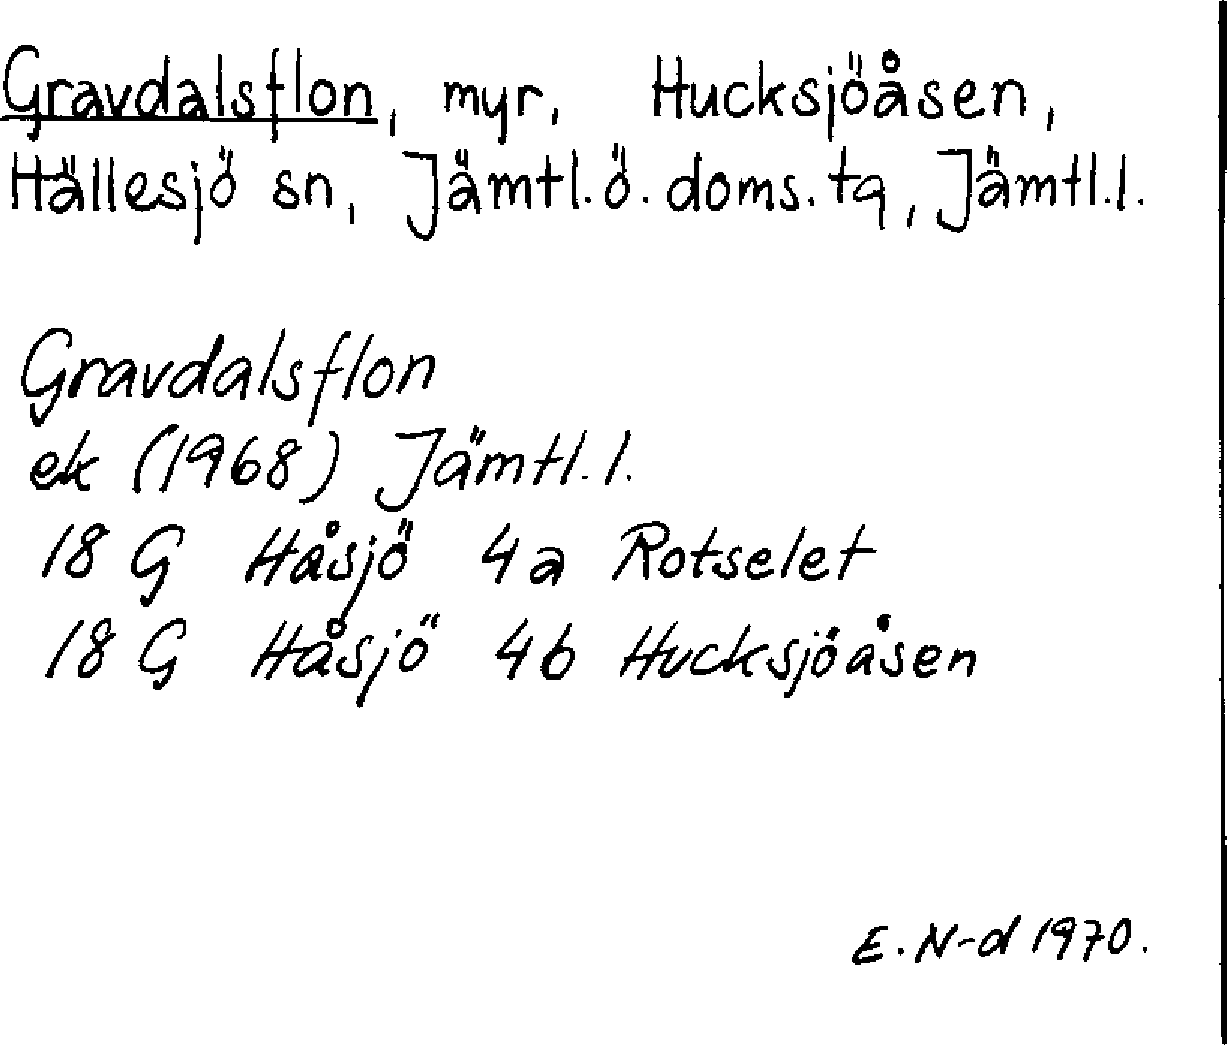 Gravdalsflon, myr, Hucksjöåsen,
Hällesjö sn, Jämtl.ö.doms.tq, Jämtl.l.
Gravdalsflon
ek (1968) Jämtl.l.
18 G Håsjö 4a Rotselet
18 G Håsjö 4b Hucksjöåsen
E.N-d 1970.